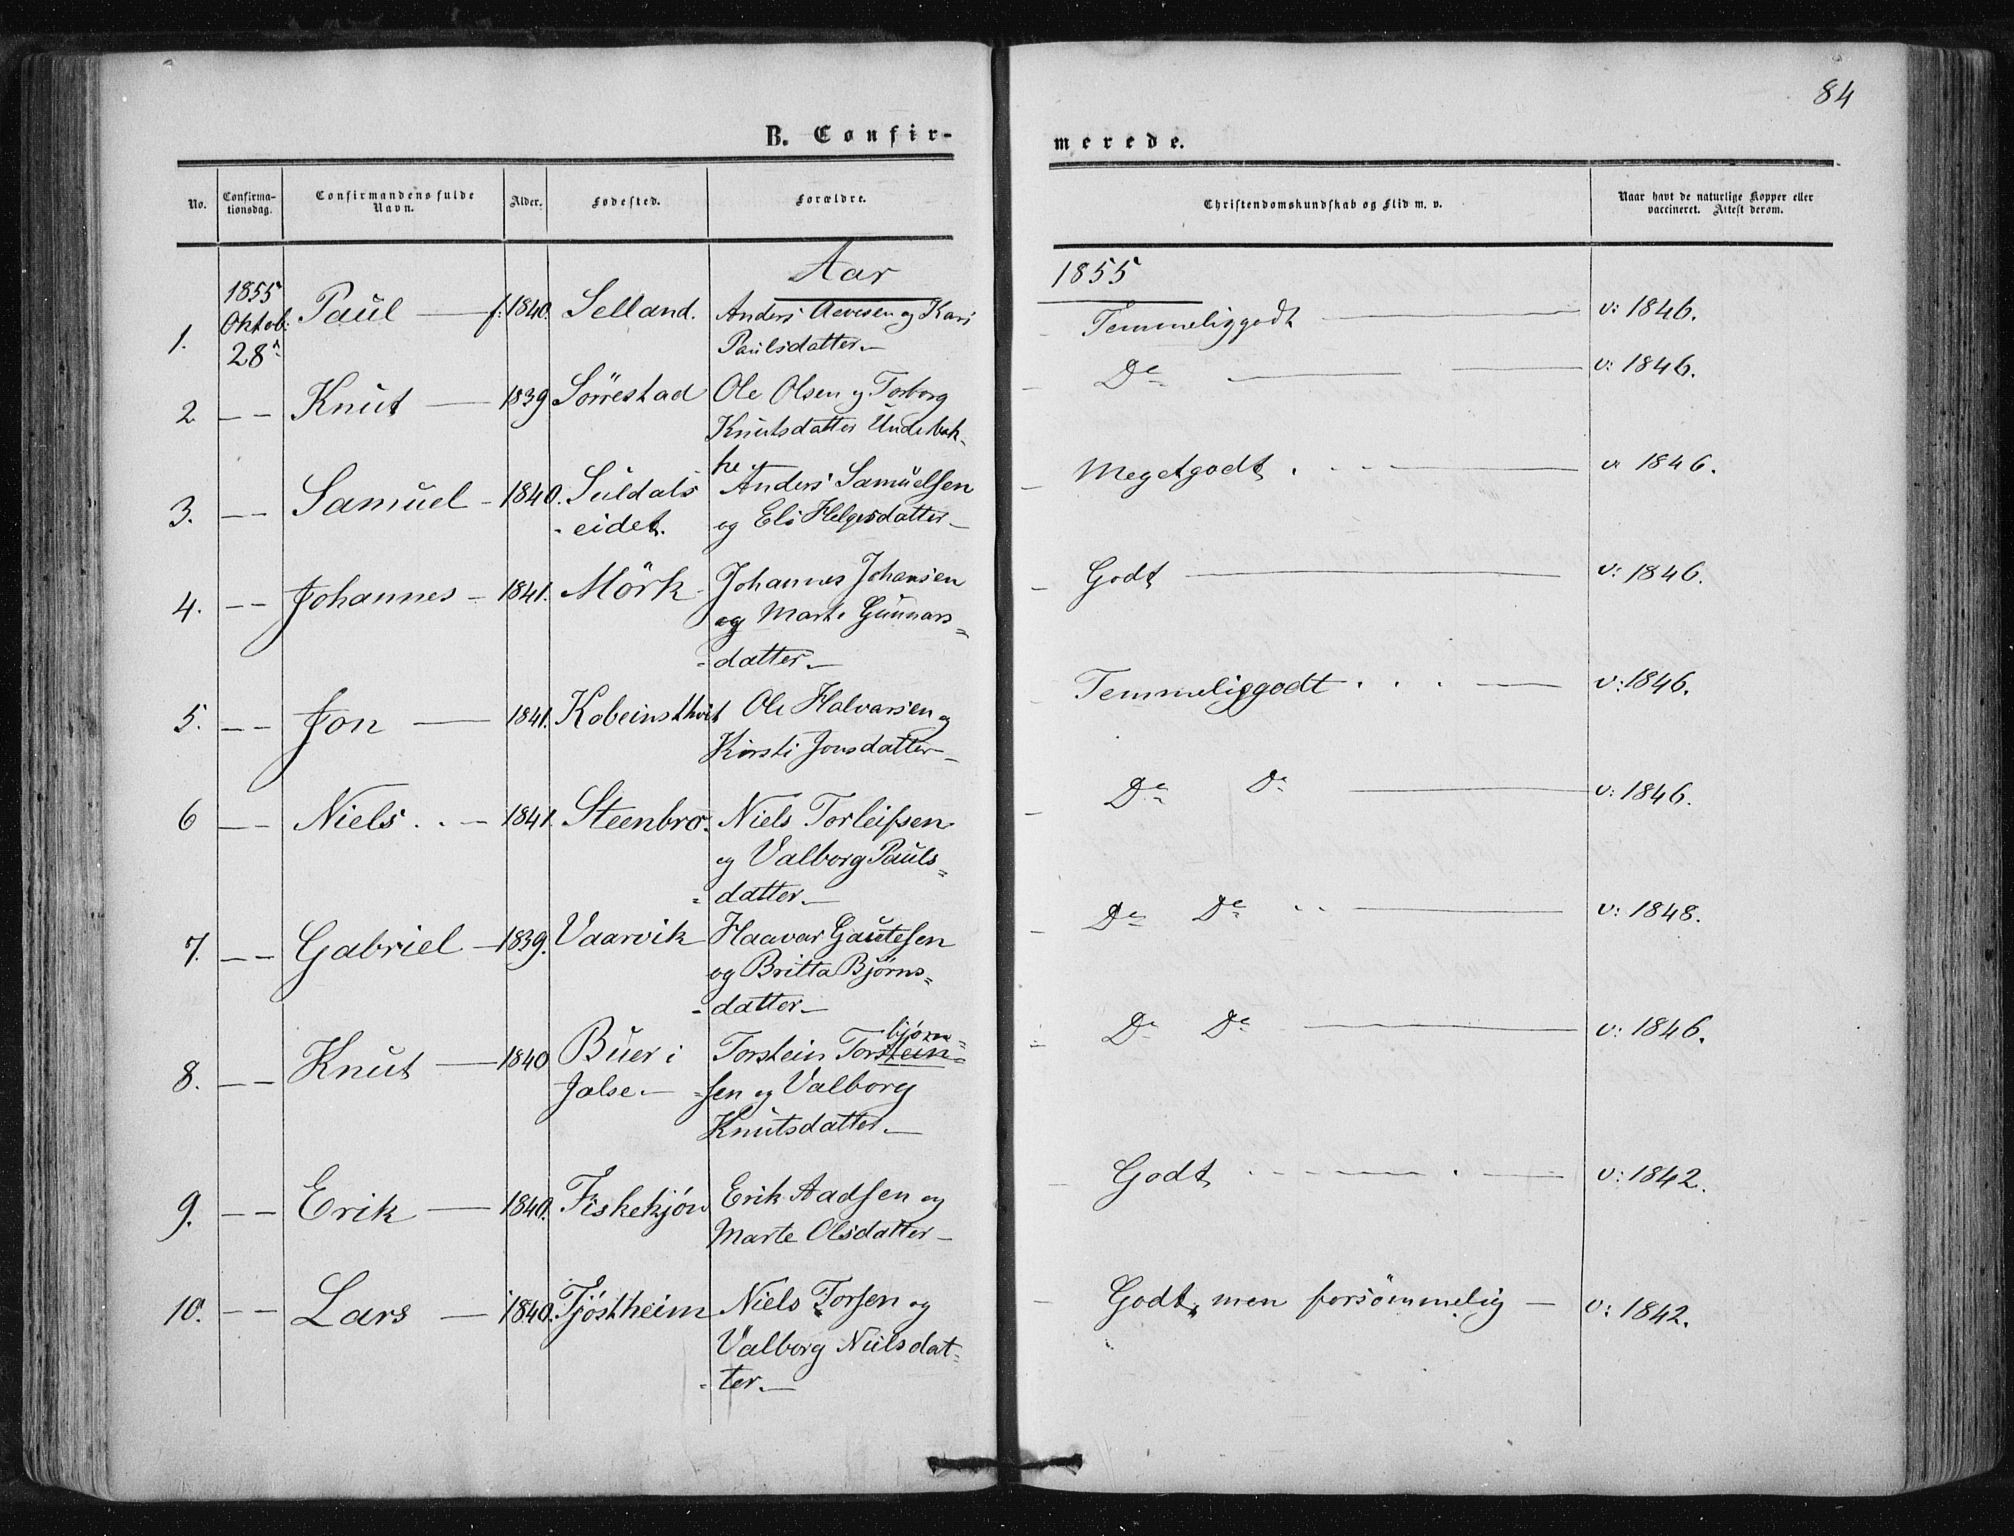 84
B. Confir-
merede.
No.
Confirma-
tionsdag.
Confirmandens fulde
Navn.
Alder.
Fødested.
Forældre.
Christendomskundskab og Flid m. v.
Naar havt de naturlige Kopper eller
vaccineret. Attest derom.
Aar
1855
1. 1855 Oktob: 28 Paul — f. 1840. Selland. Anders og Kari
Paulsdatter.—
Temmeliggodt — v: 1846.
2 — — Knut — 1839 Sörrestad Ole Olsen og Torborg
Knutsdatter Undebak-
ke.
De — — v: 1846.
3. — — Samuel - 1840. Suldals Anders Samuelsen
- eidet. og Eli Helgesdatter—
Megetgodt . - - - — v 1846.
4. — — Johannes - 1841. Mörk Johannes Johansen
og Marte Gunnars=
=datter.—
Godt — v: 1846.
5. — — Jon — 1841. Kobeinsthvit Ole Halvarsen og
Kirsti Jonsdatter—
Temmeliggodt . . . — — v: 1846.
6 — — Niels . . — 1841. Steenbro. Niels Torleifsen
og Valborg Pauls=
=datter.—
De De — v: 1846.
7. — — Gabriel — 1839. Vaarvik Haavar Gautesen
og Britta Björns=
=datter.—
De De - - — v: 1848.
8. — — Knut — 1840 Buer i Torstein Torstein=
björn=
Jalse.— =sen og Valborg
Knutsdatter.—
De De — v: 1846.
9. — — Erik — 1840. Fiskekjön Erik Aadsen og
Marte Olsdatter—
Godt - - - — . - — v: 1842.
10. — — Lars — 1840. Tjöstheim Niels Torsen og
Valborg Nielsdat=
=ter.—
Godt, men forsömmelig — v: 1842.